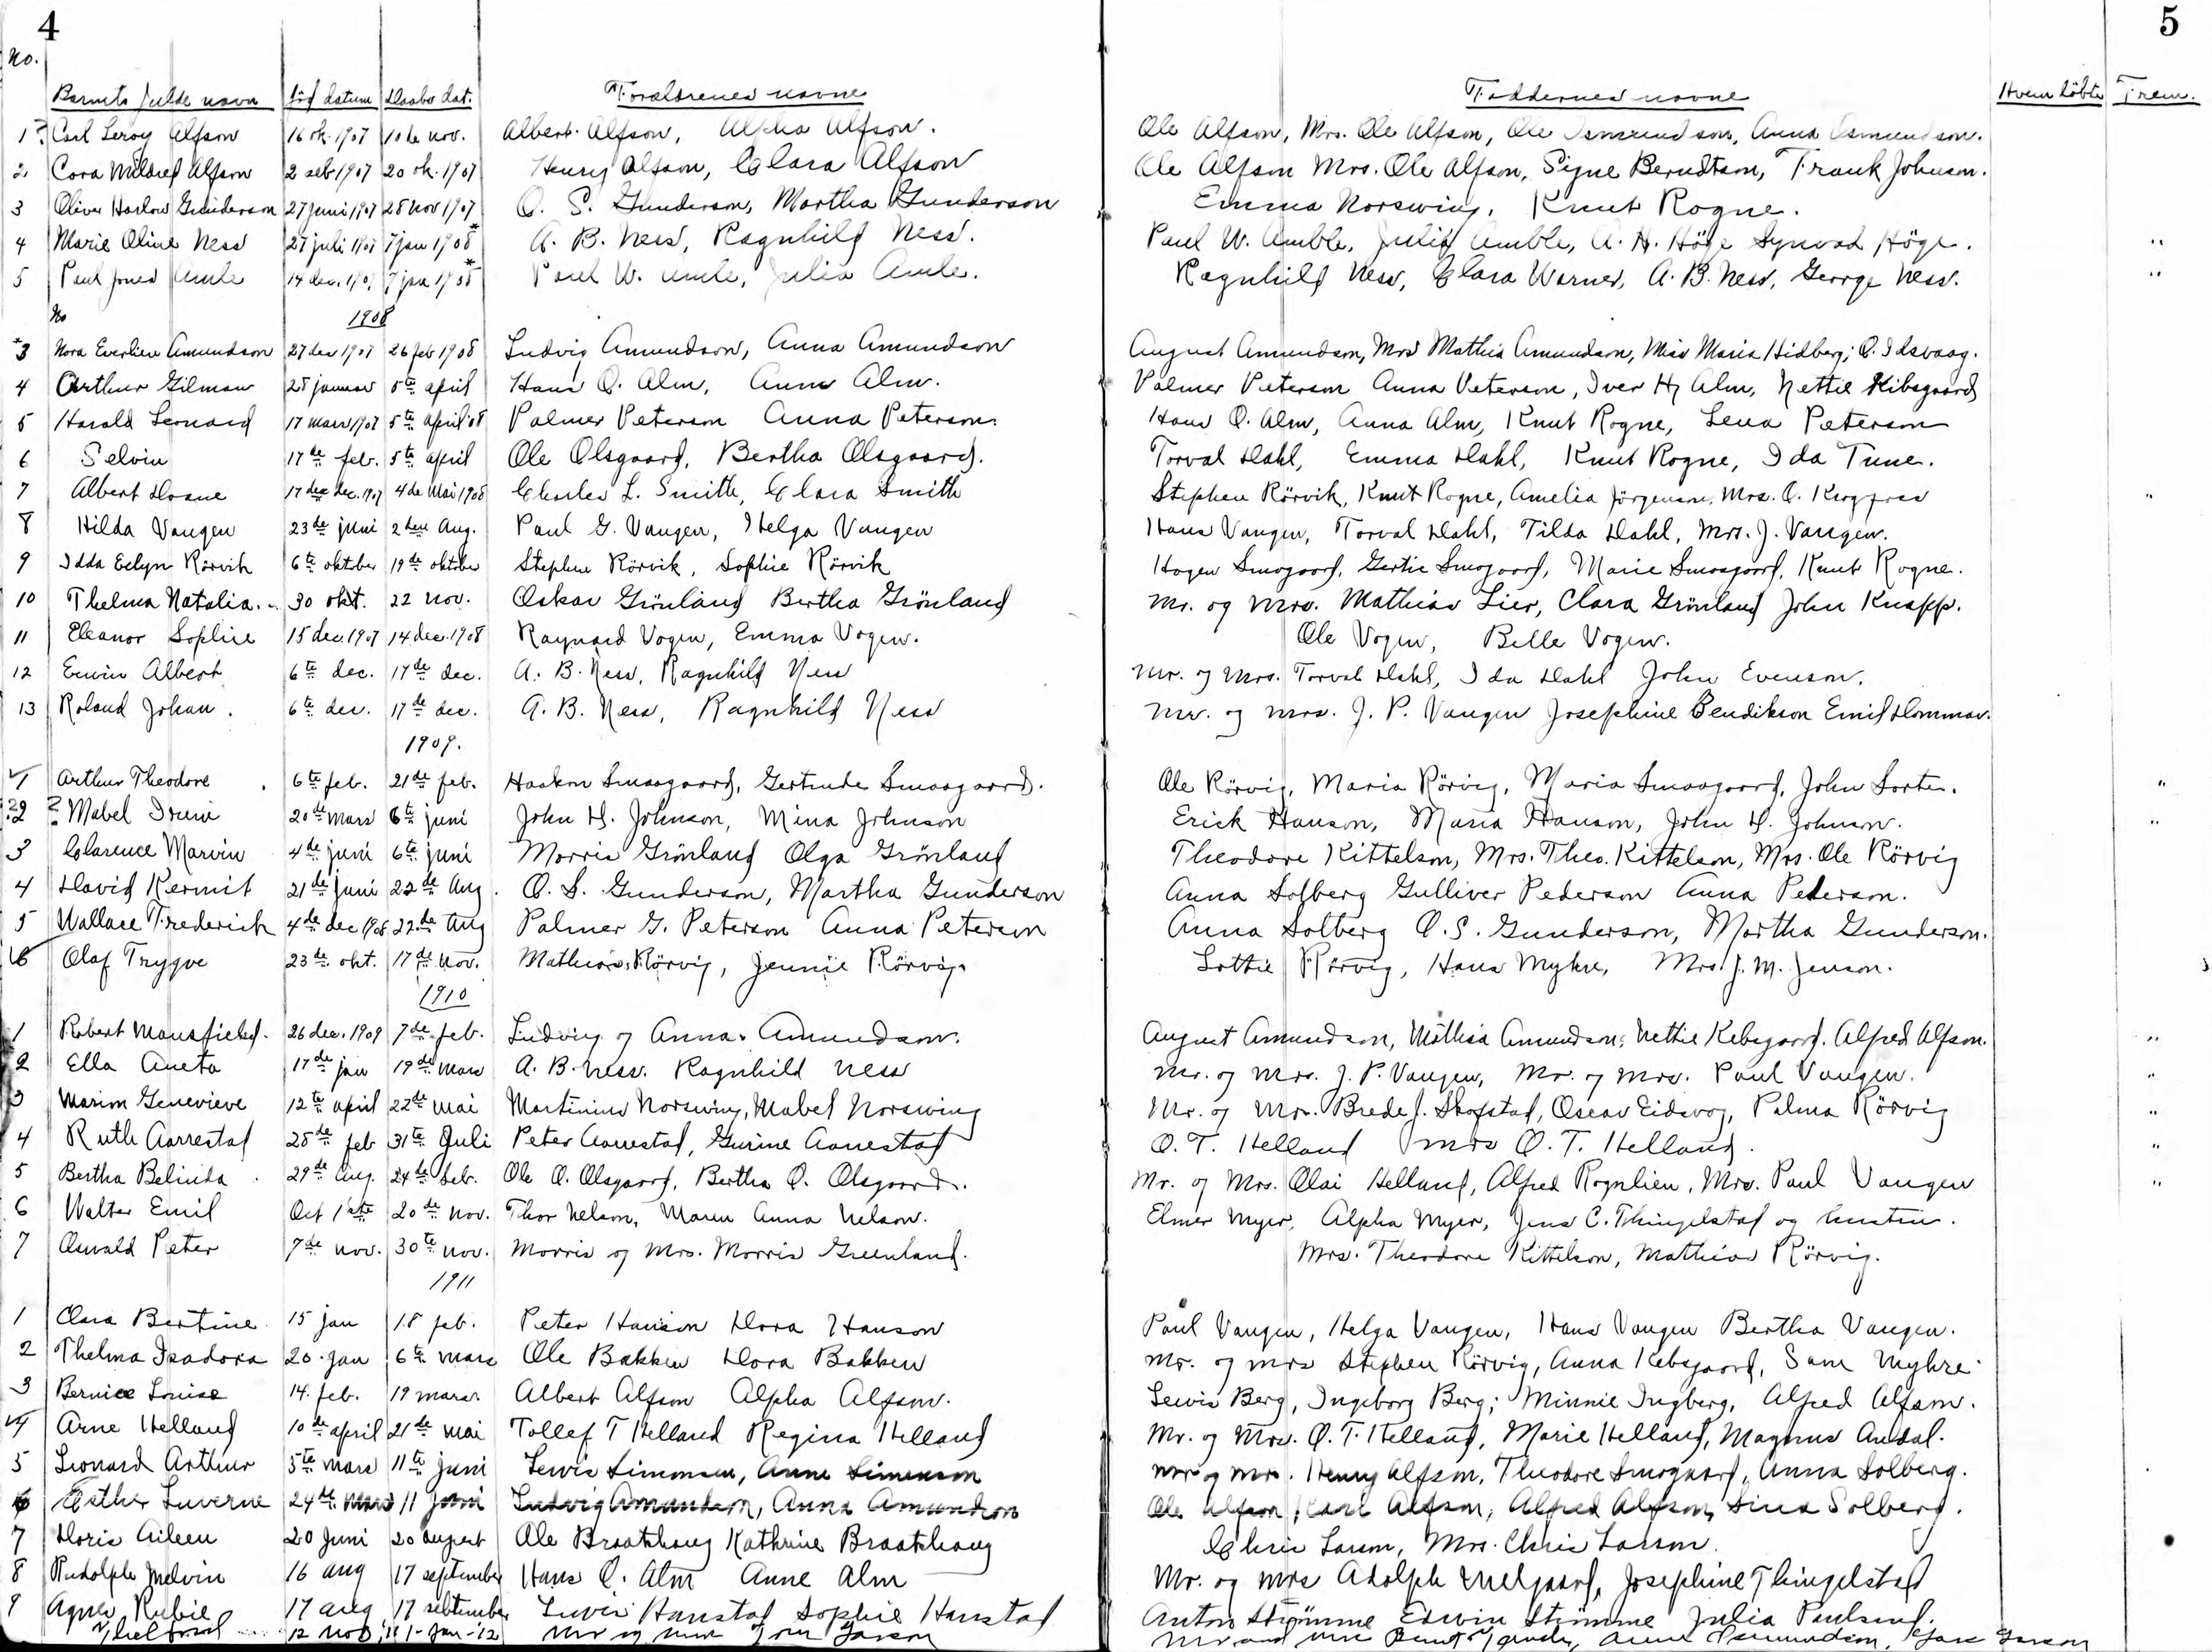 4
5
No.
Barnets fulde navn Föd datum Daabs dat. Forældrenes navne Faddernes navne Hvem döbte Frem.
1? Carl Leroy Alfson 16 ok. 1907 10de nov. Albert Alfson, Alpha Alfson. Ole Alfson, Mrs. Ole Alfson, Ole Osmundson, Anna Osmundson.
2. Cora Mildred Alfson 2 seb 1907 20 ok. 1907 Henry Alfson, Clara Alfson Ole Alfson Mrs. Ole Alfson, Signe Berndtson, Frank Johnson.
3 Oliver Harlow Gunderson 27 juni 1907 28 nov 1907 O. S. Gunderson, Martha Gunderson Emma Norswing, Knut Rogne.
4 Marie Oline Ness 27 juli 1907 7 jan 1908* A. B. Ness, Ragnhild Ness. Paul W. Amble, Julia Amble, A. H. Höge Synvad Höge. "
5 Paul Jones Amle 14 dec. 1907 7 jan 1908* Paul W. Amle, Julia Amle. Ragnhild Ness, Clara Warner, A. B. Ness, George Ness. "
No 1908
*3 Nora Everline Amundson 27 dec 1907 26 feb 1908 Ludvig Amundson, Anna Amundson August Amundson, Mrs Mathia Amundson, Miss Maria Hidberg; O. Idsvaag.
4 Arthur Gilman 28 januar 5te april Hans O. Alm, Anna Alm. Palmer Peterson Anna Peterson, Iver H. Alm, Nettie Kibsgaard
5 Harald Leonard 17 mars 1907 5te april 08 Palmer Peterson Anna Peterson. Hans O. Alm, Anna Alm, Knut Rogne, Lena Peterson
6 Selvin 17de feb. 5te april Ole Olsgaard, Bertha Olsgaard. Torval Dahl, Emma Dahl, Knut Rogne, Ida Tune.
7 Albert Doane 17de dec. 1907 4de Mai 1908 Charles L. Smith, Clara Smith Stephen Rörvik, Knut Rogne, Amelia Jörgenson, Mrs. O. "
8 Hilda Vangen 23de juni 2den Aug. Paul G. Vangen, Helga Vangen Hans Vangen, Torval Dahl, Tilda Dahl, Mrs. J. Vangen.
9 Idda Evlyn Rörvik 6te oktober 19de oktober Stephen Rörvik, Sophie Rörvik Hogen Smogaard, Gertie Smogaard, Marie Smaagaard, Knut Rogne.
10 Thelma Natalia 30 okt. 22 nov. Oskar Grönland Bertha Grönland Mr. og Mrs. Mathias Lier, Clara Grönland John Knapp.
11 Eleanor Sophie 15 dec. 1907 14 dec. 1908 Raynard Vogen, Emma Vogen. Ole Vogen, Belle Vogen.
12 Erwin Albert 6te dec. 17de dec. A. B. Ness, Ragnhild Ness Mr. og Mrs. Torval Dahl, Ida Dahl John Evenson.
13 Roland Johan. 6te dec. 17de dec. A. B. Ness, Ragnhild Ness Mr. og Mrs. J. P. Vangen Josephine Bendikson Emil Dommar.
1909.
1 Arthur Theodore 6te feb. 21de feb. Haakon Smaagaard, Gertrude Smaagaard. Ole Rörvig, Maria Rörvig, Maria Smaagaard, John Sorte. "
?2 ? Mabel Irene 20de mars 6te juni John H. Johnson, Mina Johnson Erick Hanson, Maria Hanson, John H. Johnson. "
3 Clarence Marvin 4de juni 6te juni Morris Grönland Olga Grönland Theodore Kittelson, Mrs. Theo. Kittelson, Mrs. Ole Rörvig
4 David Kermit 21de juni 22de Aug. O. S. Gunderson, Martha Gunderson Anna Solberg Gulliver Pederson Anna Pederson.
5 Wallace Frederick 4de dec 1908 22de Aug Palmer G. Peterson Anna Peterson Anna Solberg O. S. Gunderson, Martha Gunderson.
6 Olaf Trygve 23de okt. 17de nov. Mathias Rörvig, Jennie Rörvig. Lottie Rörvig, Hans Myhre, Mrs. J. M. Jenson.
1910
1 Robert Mansfield. 26 dec. 1909 7de feb. Ludvig og Anna Amundson. August Amundson, Mathia Amundson, Nettie Kebsgaard. Alfred Alfson. "
2 Ella Aneta 17de jan 19de mars A. B. Ness. Ragnhild Ness Mr. og Mrs. J. P. Vangen, Mr. og Mrs. Paul Vangen. "
3 Marion Genevieve 12te april 22de mai Martinius Norswing, Mabel Norswing Mr. og Mrs. Brede J. Skofstad, Oscar Eidsvog, Palma Rörvig "
4 Ruth Aarrestad 28de feb 31te Juli Peter Aarrestad, Gurine Aarrestad O. T. Helland Mrs O. T. Helland. "
5 Bertha Belinda 29de Aug. 24de seb. Ole O. Olsgaard, Bertha O. Olsgaard. Mr. og Mrs. Olai Helland, Alfred Rognlien, Mrs. Paul Vangen "
6 Walter Emil Oct 1ste 20de nov. Thor Nelson, Maren Anna Nelson. Elmer Myer, Alpha Myer, Jens C. Thingelstad og hustru.
7 Oswald Peter 7de nov. 30te nov. Morris og Mrs. Morris Greenland. Mrs. Theodore Kittelson, Mathias Rörvig.
1911
1 Clara Bertine 15 jan 18 feb. Peter Hanson Dora Hanson Paul Vangen, Helga Vangen, Hans Vangen Bertha Vangen.
2 Thelma Isadora 20 jan 6te mars Ole Bakken Dora Bakken Mr. og Mrs Stephen Rörvig, Anna Kebsgaard, Sam Myhre
3 Bernice Louise 14. feb. 19 mars. Albert Alfson Alpha Alfson. Lewis Berg, Ingeborg Berg; Minnie Ingberg, Alfred Alfson.
4 Arne Helland 10de april 21de mai Tollef T Helland Regina Helland Mr. og Mrs. O. T. Helland, Marie Helland, Magnus Andal.
5 Leonard Arthur 5te mars 11te juni Lewis Simonsen, Anne Simenson Mr og Mrs. Henry Alfson, Theodore Smogaard, Anna Solberg.
6 Esther Luverne 24de mars 11 juni Ludvig Amundson, Anna Amundson Ole Alfson, Carl Alfson, Alfred Alfson, Sina Solberg.
7 Doris Aileen 20 Juni 20 august Ole Braathaug Kathrine Braathaug Chris Larson, Mrs. Chris Larson.
8 Rudolph Melvin 16 aug 17 september Hans O. Alm Anne Alm Mr. og Mrs Adolph Melgaard, Josephine Thingelstad
9 Agnes Rubie 17 aug 17 september Lewis Hanstad Sophie Hanstad Anton Strömme Edwin Strömme Julia Paulsrud.
12 nov 1-Jan-12 Mr og Mrs Larson Mr and Mrs